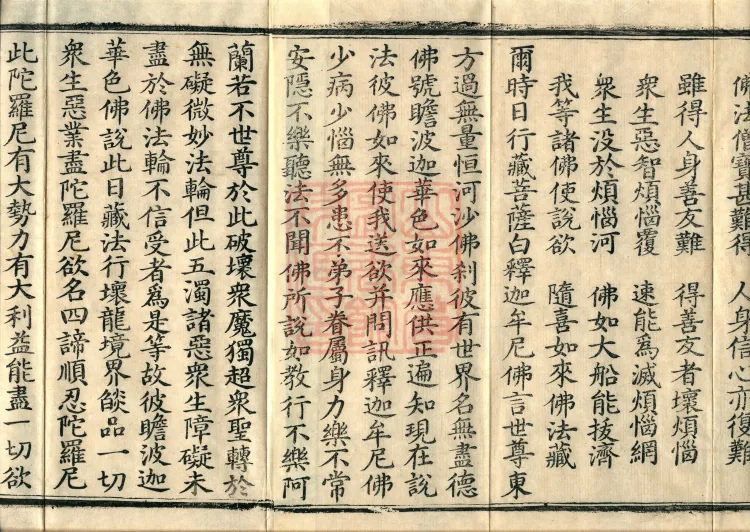 佛法僧寶甚難得　人身信心亦復難
雖得人身善友難　得善友者壞煩惱
衆生惡智煩惱覆　速能爲滅煩惱網
衆生没於煩惱河　佛如大船能拔濟
我等諸佛使說欲　隨喜如來佛法藏
爾時日行藏菩薩白釋迦牟尼佛言世尊東
方過無量恒河沙佛刹彼有世界名無盡德
佛號瞻波迦華色如來應供正遍知現在說
法彼佛如來使我送欲并問訊釋迦牟尼佛
少病少惱無多患不弟子眷屬身力樂不常
安隱不樂聽法不聞佛所說如教行不樂阿
蘭若不世尊於此破壞衆魔獨超衆聖轉於
無礙微妙法輪但此五濁諸惡衆生障礙未
盡於佛法輪不信受者爲是等故彼瞻波迦
華色佛說此日藏法行壞龍境界燄品一切
衆生惡業盡陀羅尼欲名四諦順忍陀羅尼
此陀羅尼有大勢力有大利益能盡一切欲